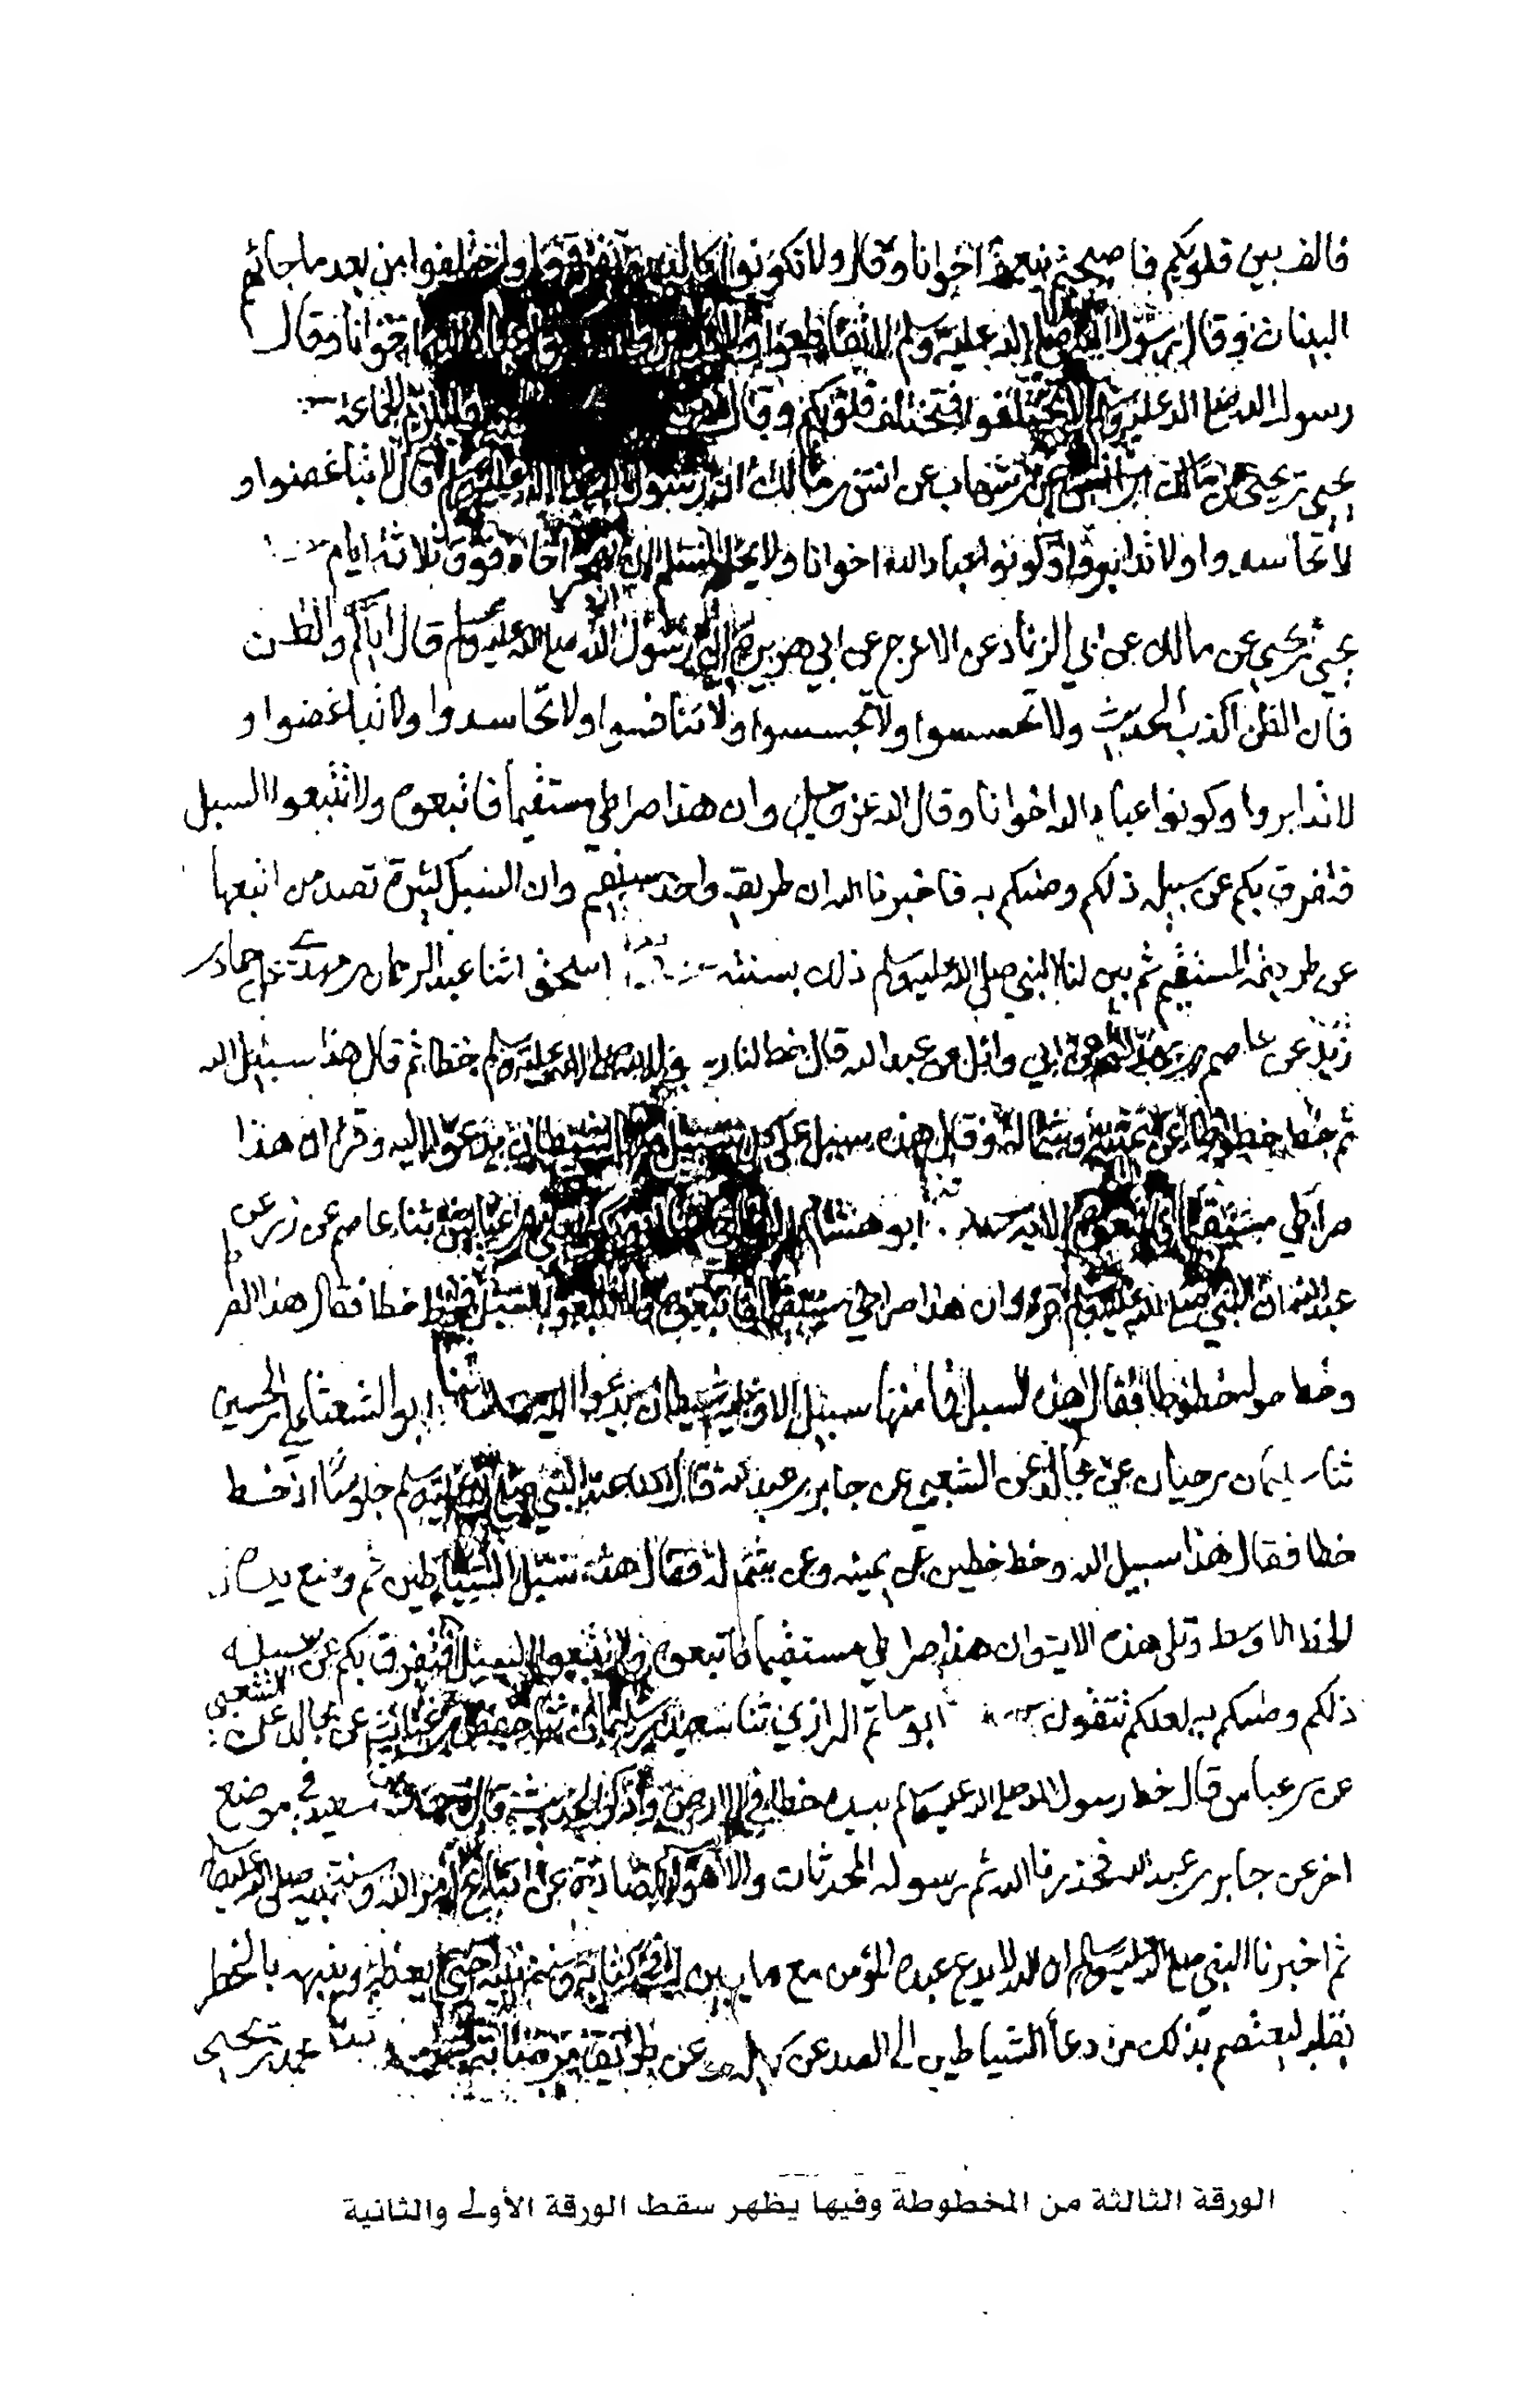 فالف بين قلوبكم فاصبحتم بنعمته اخوانا وقال ولا تكونوا كالذين تفرقوا واختلفوا من بعد ما جائهم
البينات وقال رسول الله صلى الله عليه وسلم لا تقاطعوا ولا تدابروا وكونوا عباد الله اخوانا وقال
رسول الله صلى الله عليه وسلم لا تختلفوا فتختلف قلوبكم وقال الجماعة
يحيى بن يحيى عن مالك عن ابن شهاب عن انس بن مالك ان رسول الله صلى الله عليه وسلم قال لا تباغضوا و
لا تحاسدوا ولا تدابروا وكونوا عباد الله اخوانا ولا يحل لمسلم ان يهجر اخاه فوق ثلاثة ايام
يحيى بن يحيى عن مالك عن ابي الزناد عن الاعرج عن ابي هريرة ان رسول الله صلى الله عليه وسلم قال اياكم والظن
فان الظن اكذب الحديث ولا تحسسوا ولا تجسسوا ولا تنافسوا ولا تحاسدوا ولا تباغضوا و
لا تدابروا وكونوا عباد الله اخوانا وقال الله عز وجل وان هذا صراطي مستقيما فاتبعوه ولا تتبعوا السبل
فتفرق بكم عن سبيله ذلكم وصاكم به فاخبرنا الله ان طريقه واحد مستقيم وان السبل كثيرة تصد من اتبعها
عن طريقه المستقيم ثم بين لنا النبي صلى الله عليه وسلم ذلك بسنته اسحق انا عبد الرحمان بن مهدي عن حماد بن
زيد عن عاصم بن بهدلة عن ابي وائل عن عبد الله قال خط لنا رسول الله صلى الله عليه وسلم خطا ثم قال هذا سبيل الله
ثم خط خطوطا عن يمينه وشماله وقال هذه سبل على كل سبيل منها شيطان يدعوا اليه وقرا ان هذا
صراطي مستقيما فاتبعوه الاية ابو هشام الرفاعي بن عياش ثنا عاصم عن زر عن
عبد الله ان النبي صلى الله عليه وسلم قرا وان هذا صراطي مستقيما فاتبعوه ولا تتبعوا السبل فخط خطا فقال هذا الصراط
وخط حوله خطوطا فقال هذه السبل فما منها سبيل الا وعليه شيطان يدعوا اليه ابو الشعثا علي بن الحسين
ثنا سليمان بن حيان عن مجالد عن الشعبي عن جابر بن عبد الله قال كنا عند النبي صلى الله عليه وسلم جلوسا اذ خط
خطا فقال هذا سبيل الله وخط خطين عن يمينه وعن شماله فقال هذه سبل الشياطين ثم وضع يده في
الخط الاوسط وتلى هذه الاية وان هذا صراطي مستقيما فاتبعوه ولا تتبعوا السبل فتفرق بكم عن سبيله
ذلكم وصاكم به لعلكم تتقون ابو حاتم الرازي ثنا سعيد بن سليمان ثنا حفص بن غياث عن مجالد عن الشعبي
عن بن عباس قال خط رسول الله صلى الله عليه وسلم بيده خطا في الارض وذكر الحديث قال سعيد في موضع
اخر عن جابر بن عبد الله فحذرنا الله ثم رسوله المحدثات والاهواء الصادة عن اتباع امر الله وسنة نبيه صلى الله عليه وسلم
ثم اخبرنا النبي صلى الله عليه وسلم ان الله لا يدع عبده المؤمن مع ما بين له في كتابه وسنة نبيه حتى يعظه وينبهه بالخطر
بقلبه ليعتصم بذلك من دعا الشياطين الى الصد عن سبيله عن طريق مرضاته محمد بن يحيى
الورقة الثالثة من المخطوطة وفيها يظهر سقط الورقة الأولى والثانية